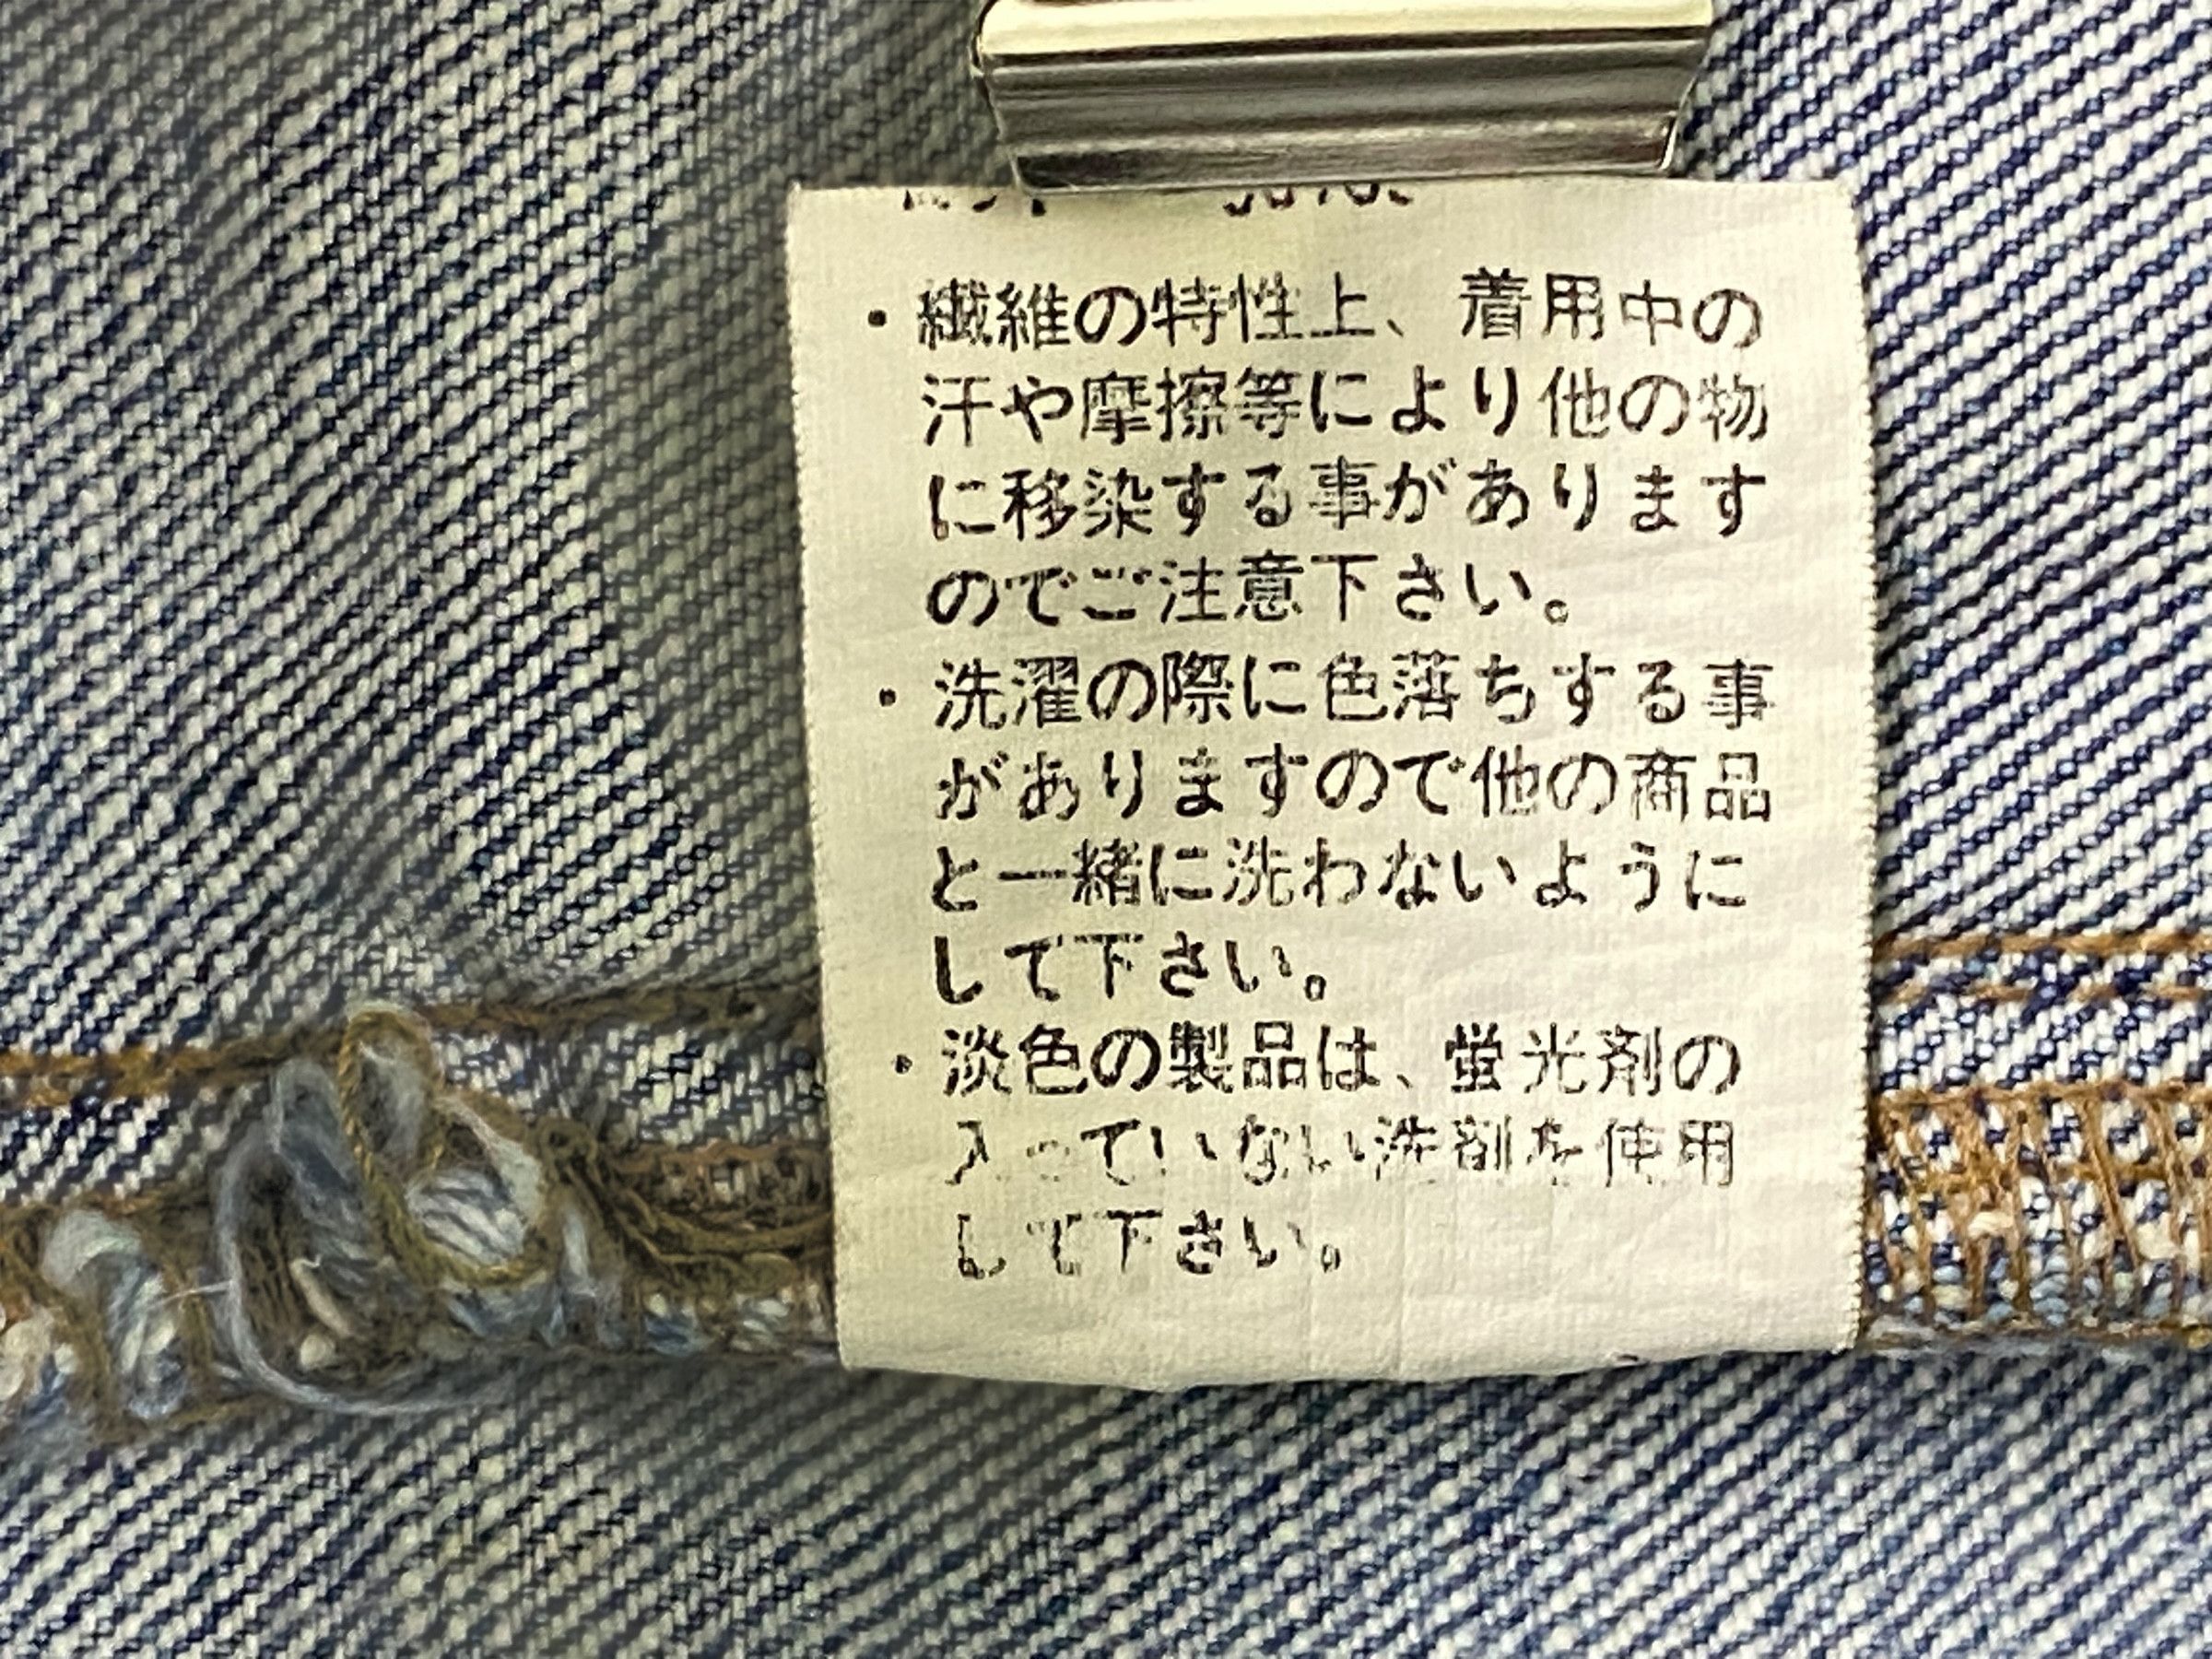 ・繊維の特性上、着用中の
汗や摩擦等により他の物
に移染する事があります
のでご注意下さい。
・洗濯の際に色落ちする事
がありますので他の商品
と一緒に洗わないように
して下さい。
・淡色の製品は、蛍光剤の
入っていない洗剤を使用
して下さい。